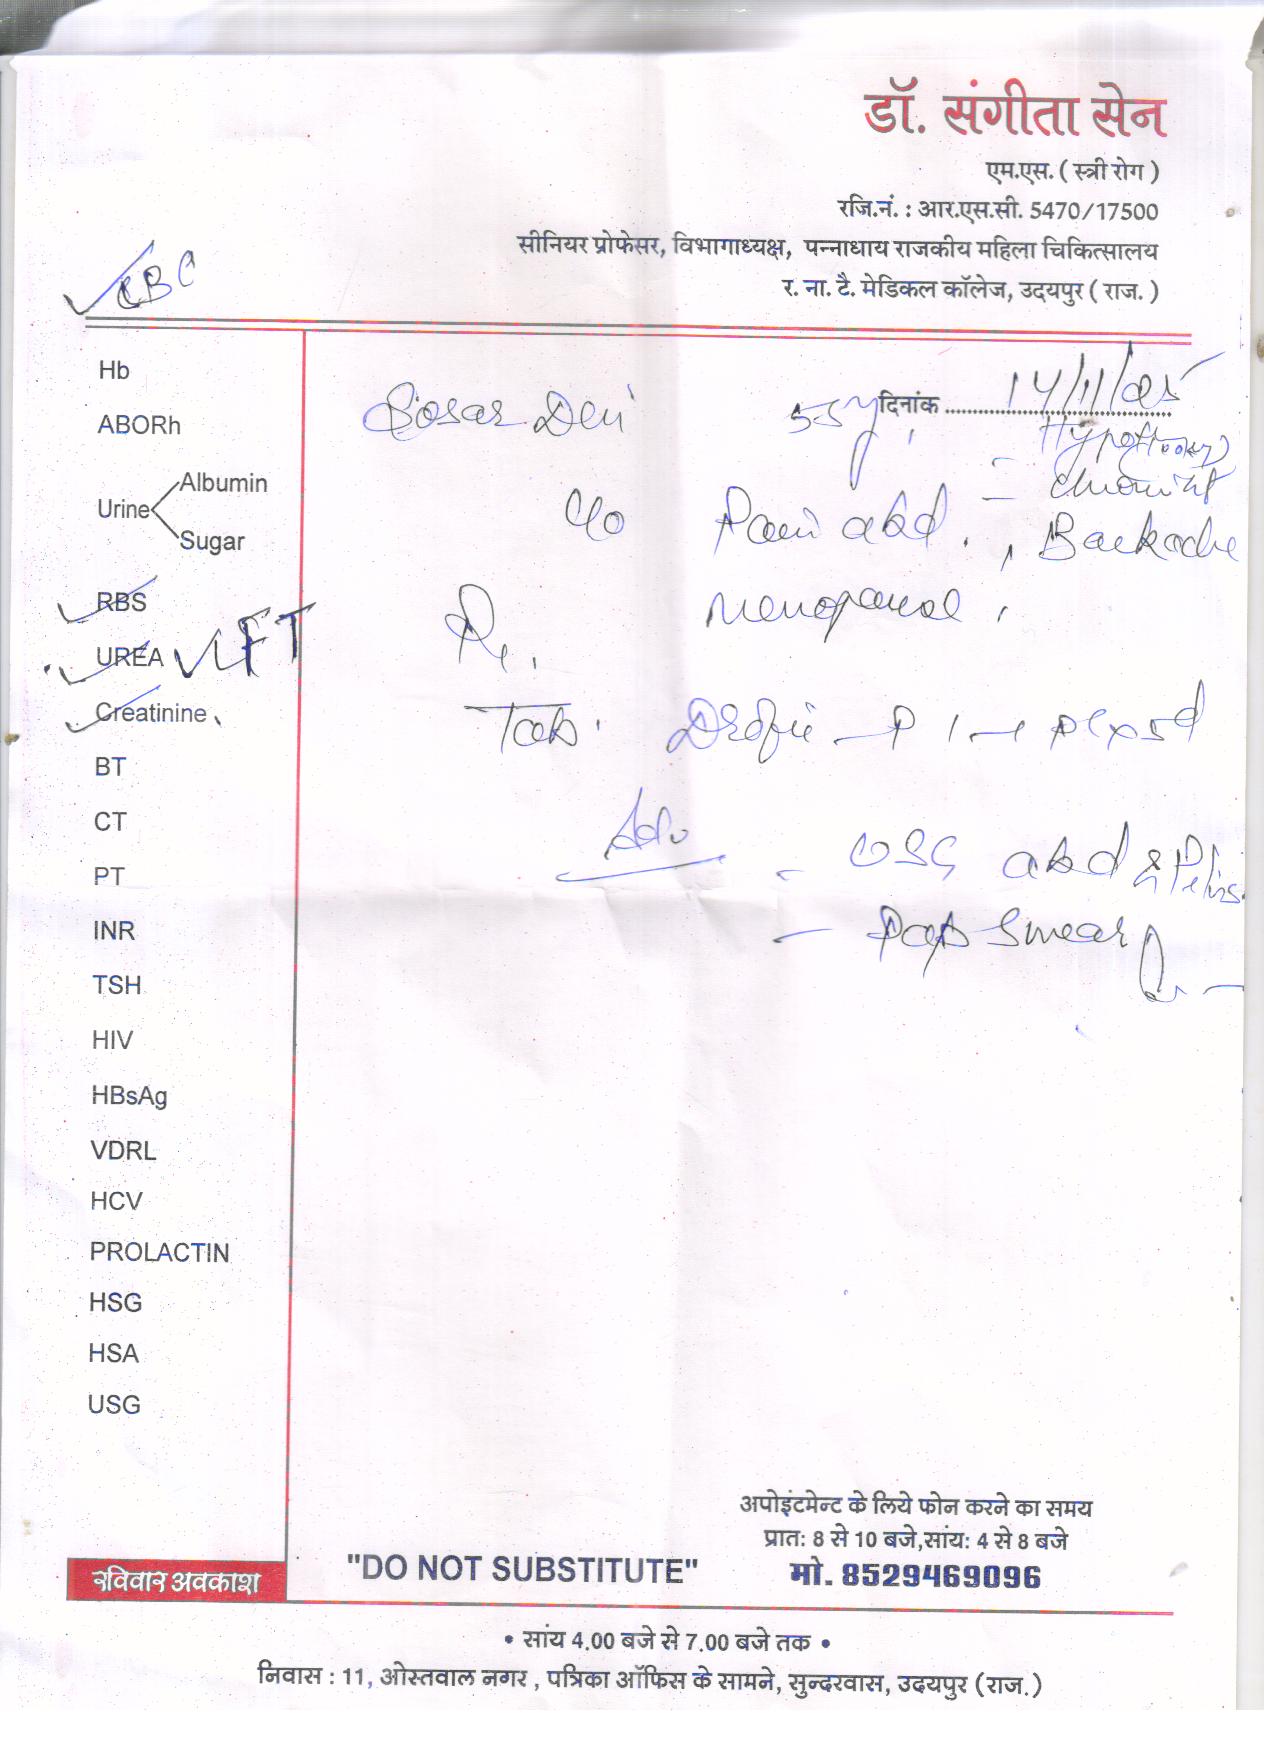 डॉ. संगीता सेन
एम.एस. ( स्त्री रोग )
रजि.नं. : आर.एस.सी. 5470/17500
सीनियर प्रोफेसर, विभागाध्यक्ष, पन्नाधाय राजकीय महिला चिकित्सालय
र. ना. टै. मेडिकल कॉलेज, उदयपुर ( राज. )
CBC
Hb
ABORh
Urine Albumin
Sugar
RBS
UREA LFT
Creatinine
BT
CT
PT
INR
TSH
HIV
HBsAg
VDRL
HCV
PROLACTIN
HSG
HSA
USG
रविवार अवकाश
दिनांक 14/11/25
Devi 55y
c/o Pain abd. , Backache
menopausal
Rx
Tab. P
Adv - USG abd & Pelvis
- Pap Smear
अपोइंटमेन्ट के लिये फोन करने का समय
प्रातः 8 से 10 बजे,सांयः 4 से 8 बजे
"DO NOT SUBSTITUTE" मो. 8529469096
• सांय 4.00 बजे से 7.00 बजे तक •
निवास : 11, ओस्तवाल नगर , पत्रिका ऑफिस के सामने, सुन्दरवास, उदयपुर (राज.)